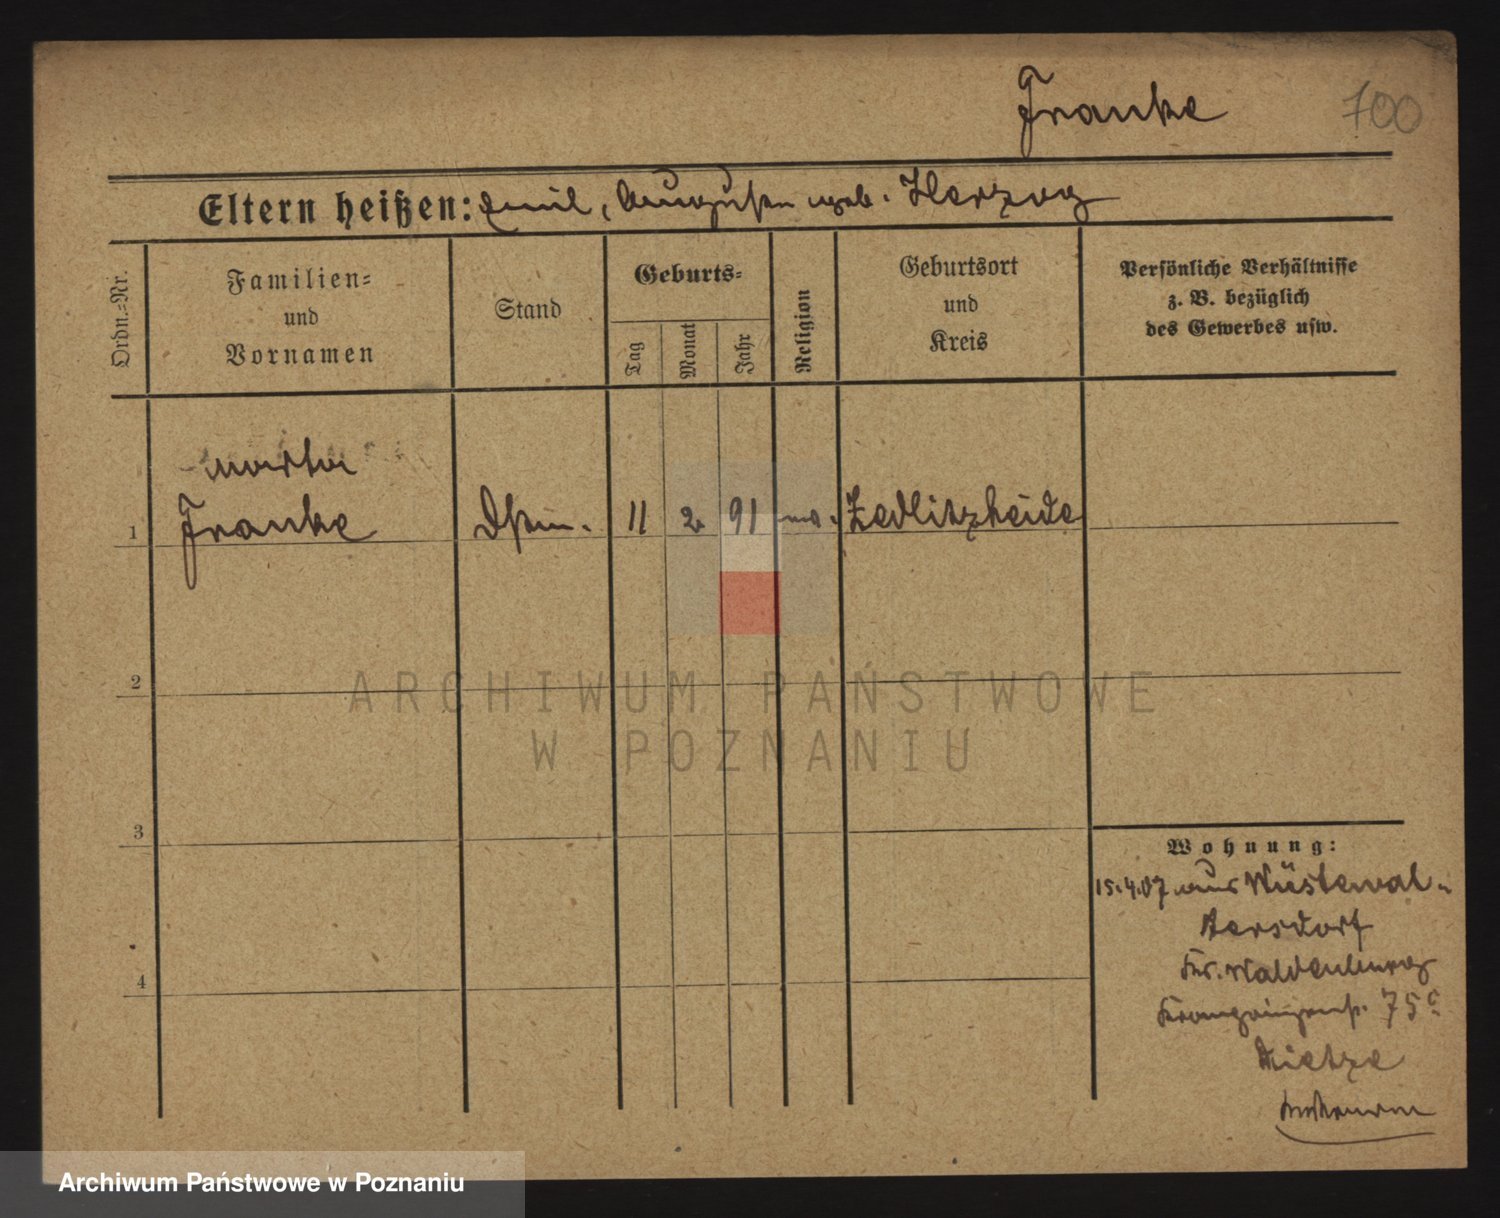 Franke
700
Eltern heißen: Emil, Auguste geb. Herzog
Ordn.-Nr.
Familien-
und
Vornamen
Stand
Geburts-
Tag
Monat
Jahr
Religion
Geburtsort
und
Kreis
Persönliche Verhältnisse
z. B. bezüglich
des Gewerbes usw.
Martha
1 Franke Dstm. 11 2 91 Zedlitzheide
2
3
4
Wohnung:
15.4.07 aus Wüstewal-
tersdorf
Kr. Waldenburg
Kronprinzenst. 75c
Tietze
ARCHIWUM PAŃSTWOWE
W POZNANIU
Archiwum Państwowe w Poznaniu